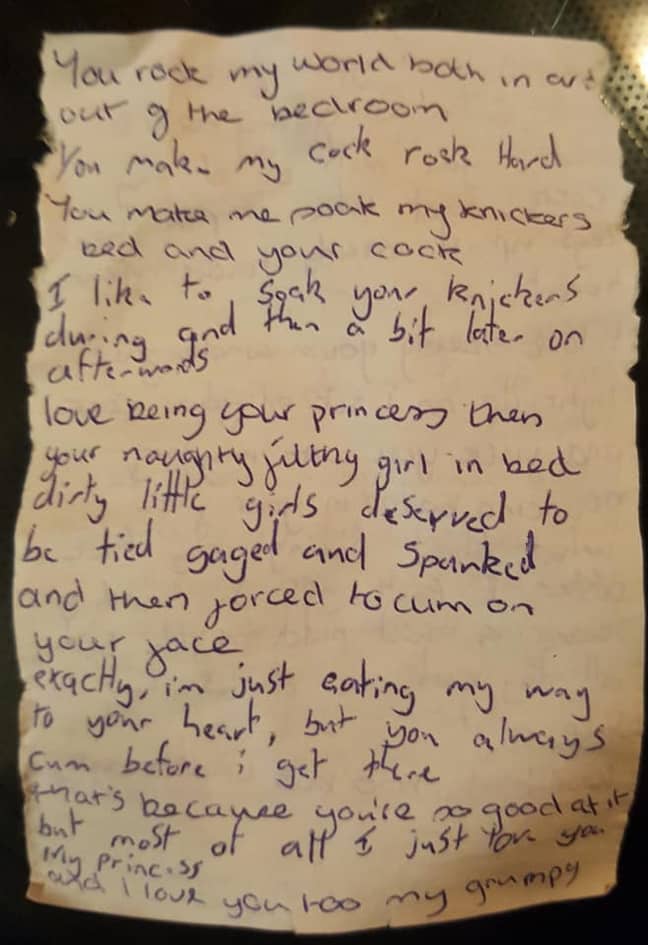 You rock my world both in and
out of the bedroom
You make my cock rock Hard
You make me soak my knickers
bed and your cock
I like to soak your knickers
during and then a bit later on
afterwards
love being your princess then
your naughty filthy girl in bed
dirty little girls deserved to
be tied gaged and spanked
and then forced to cum on
your face
exactly, i'm just eating my way
to your heart, but you always
cum before i get there
that's because you're so good at it
but most of all I just love you
My Princess
and I love you too my grumpy